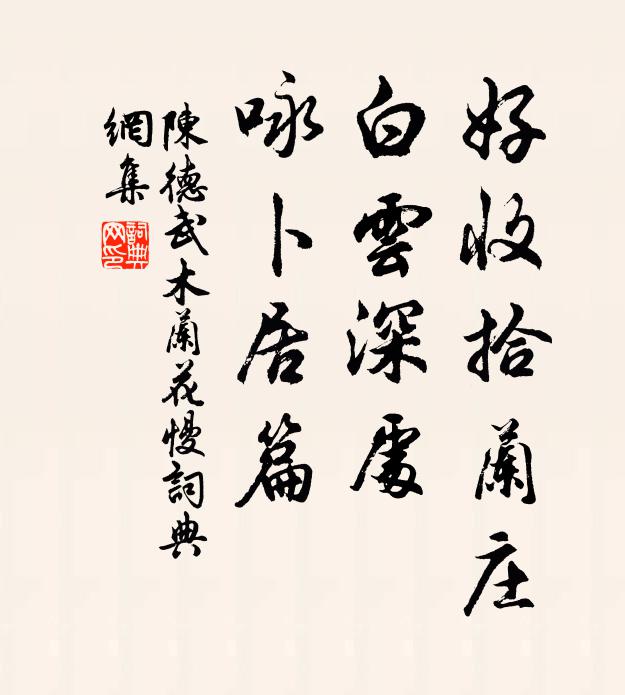 好收拾蘭庄
白雲深處
咏卜居篇
陳德武木蘭花慢詞典
網集
詞典
网印